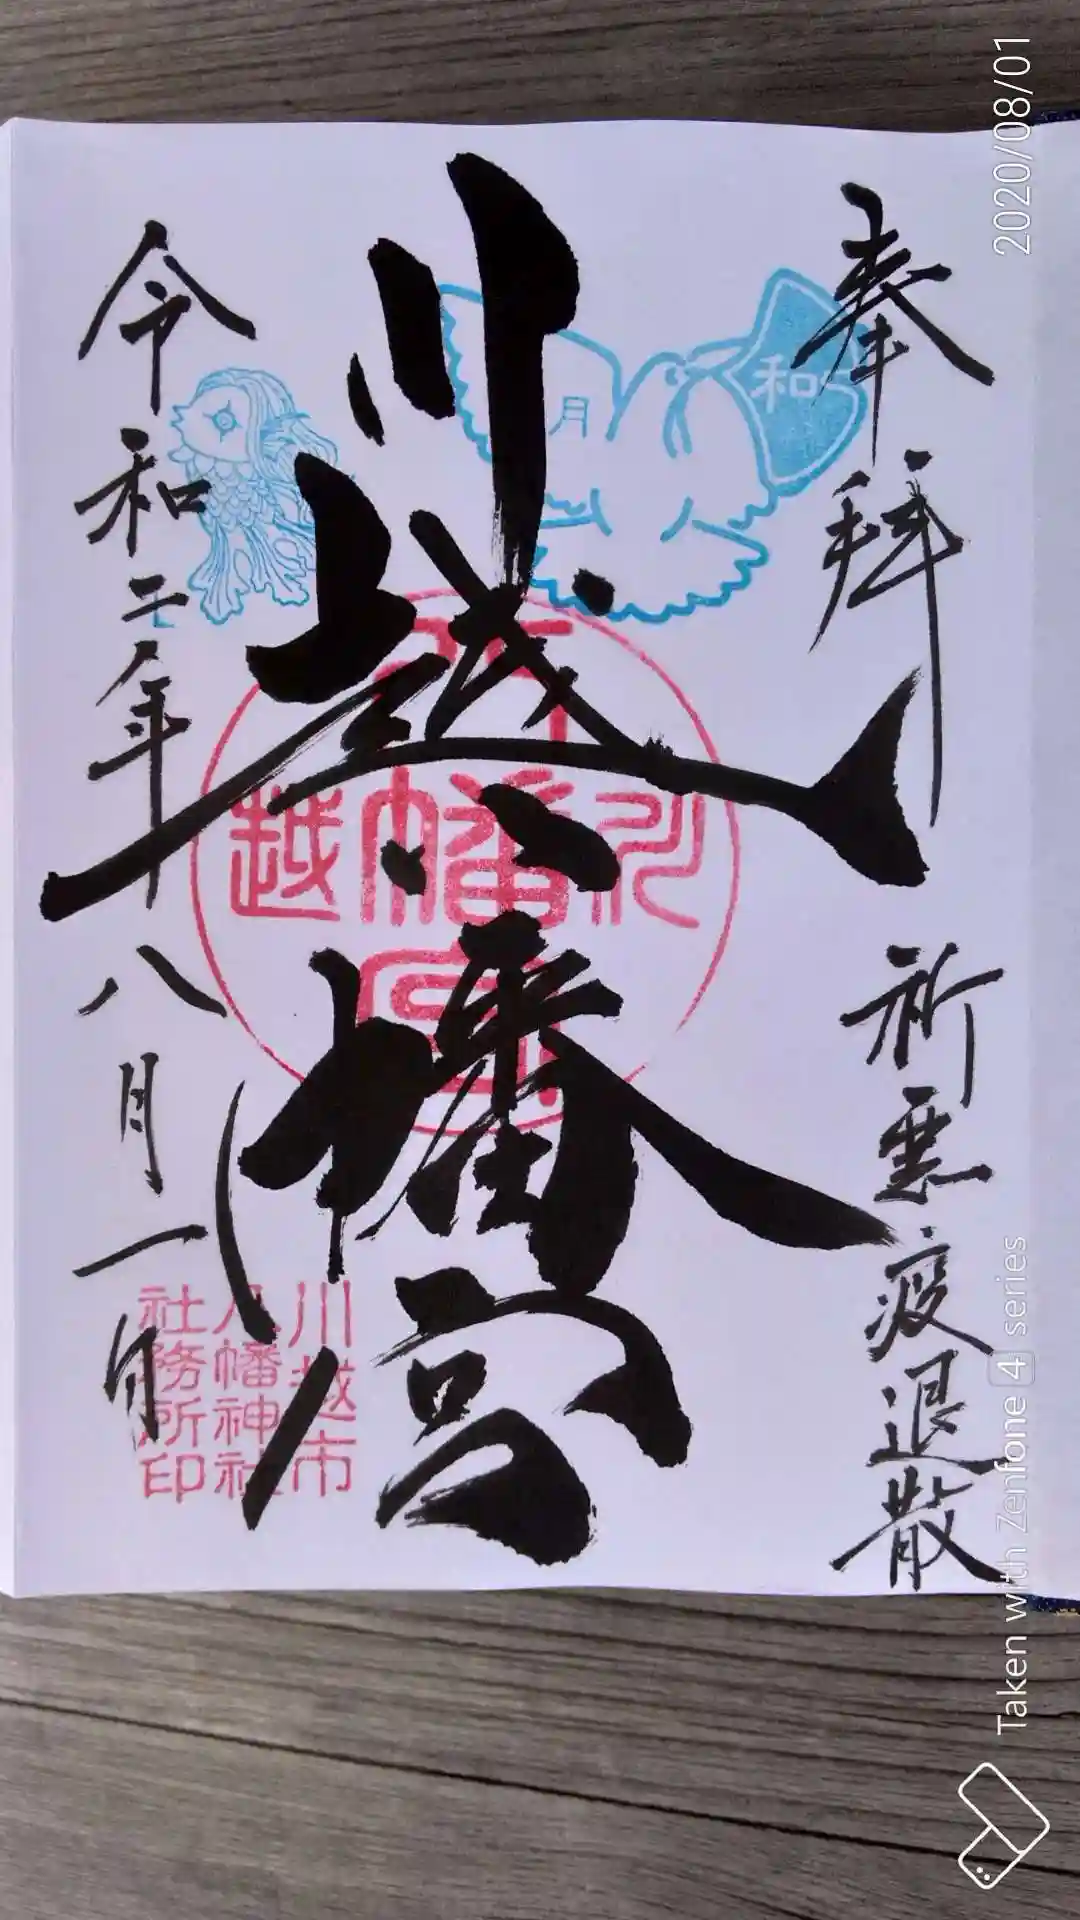 奉拝
祈悪疫退散
川越八幡宮
令和二年八月一日
和
月
川
八幡宮
越
川越市
八幡神社
社務所印
2020/08/01
Taken with Zenfone 4 series